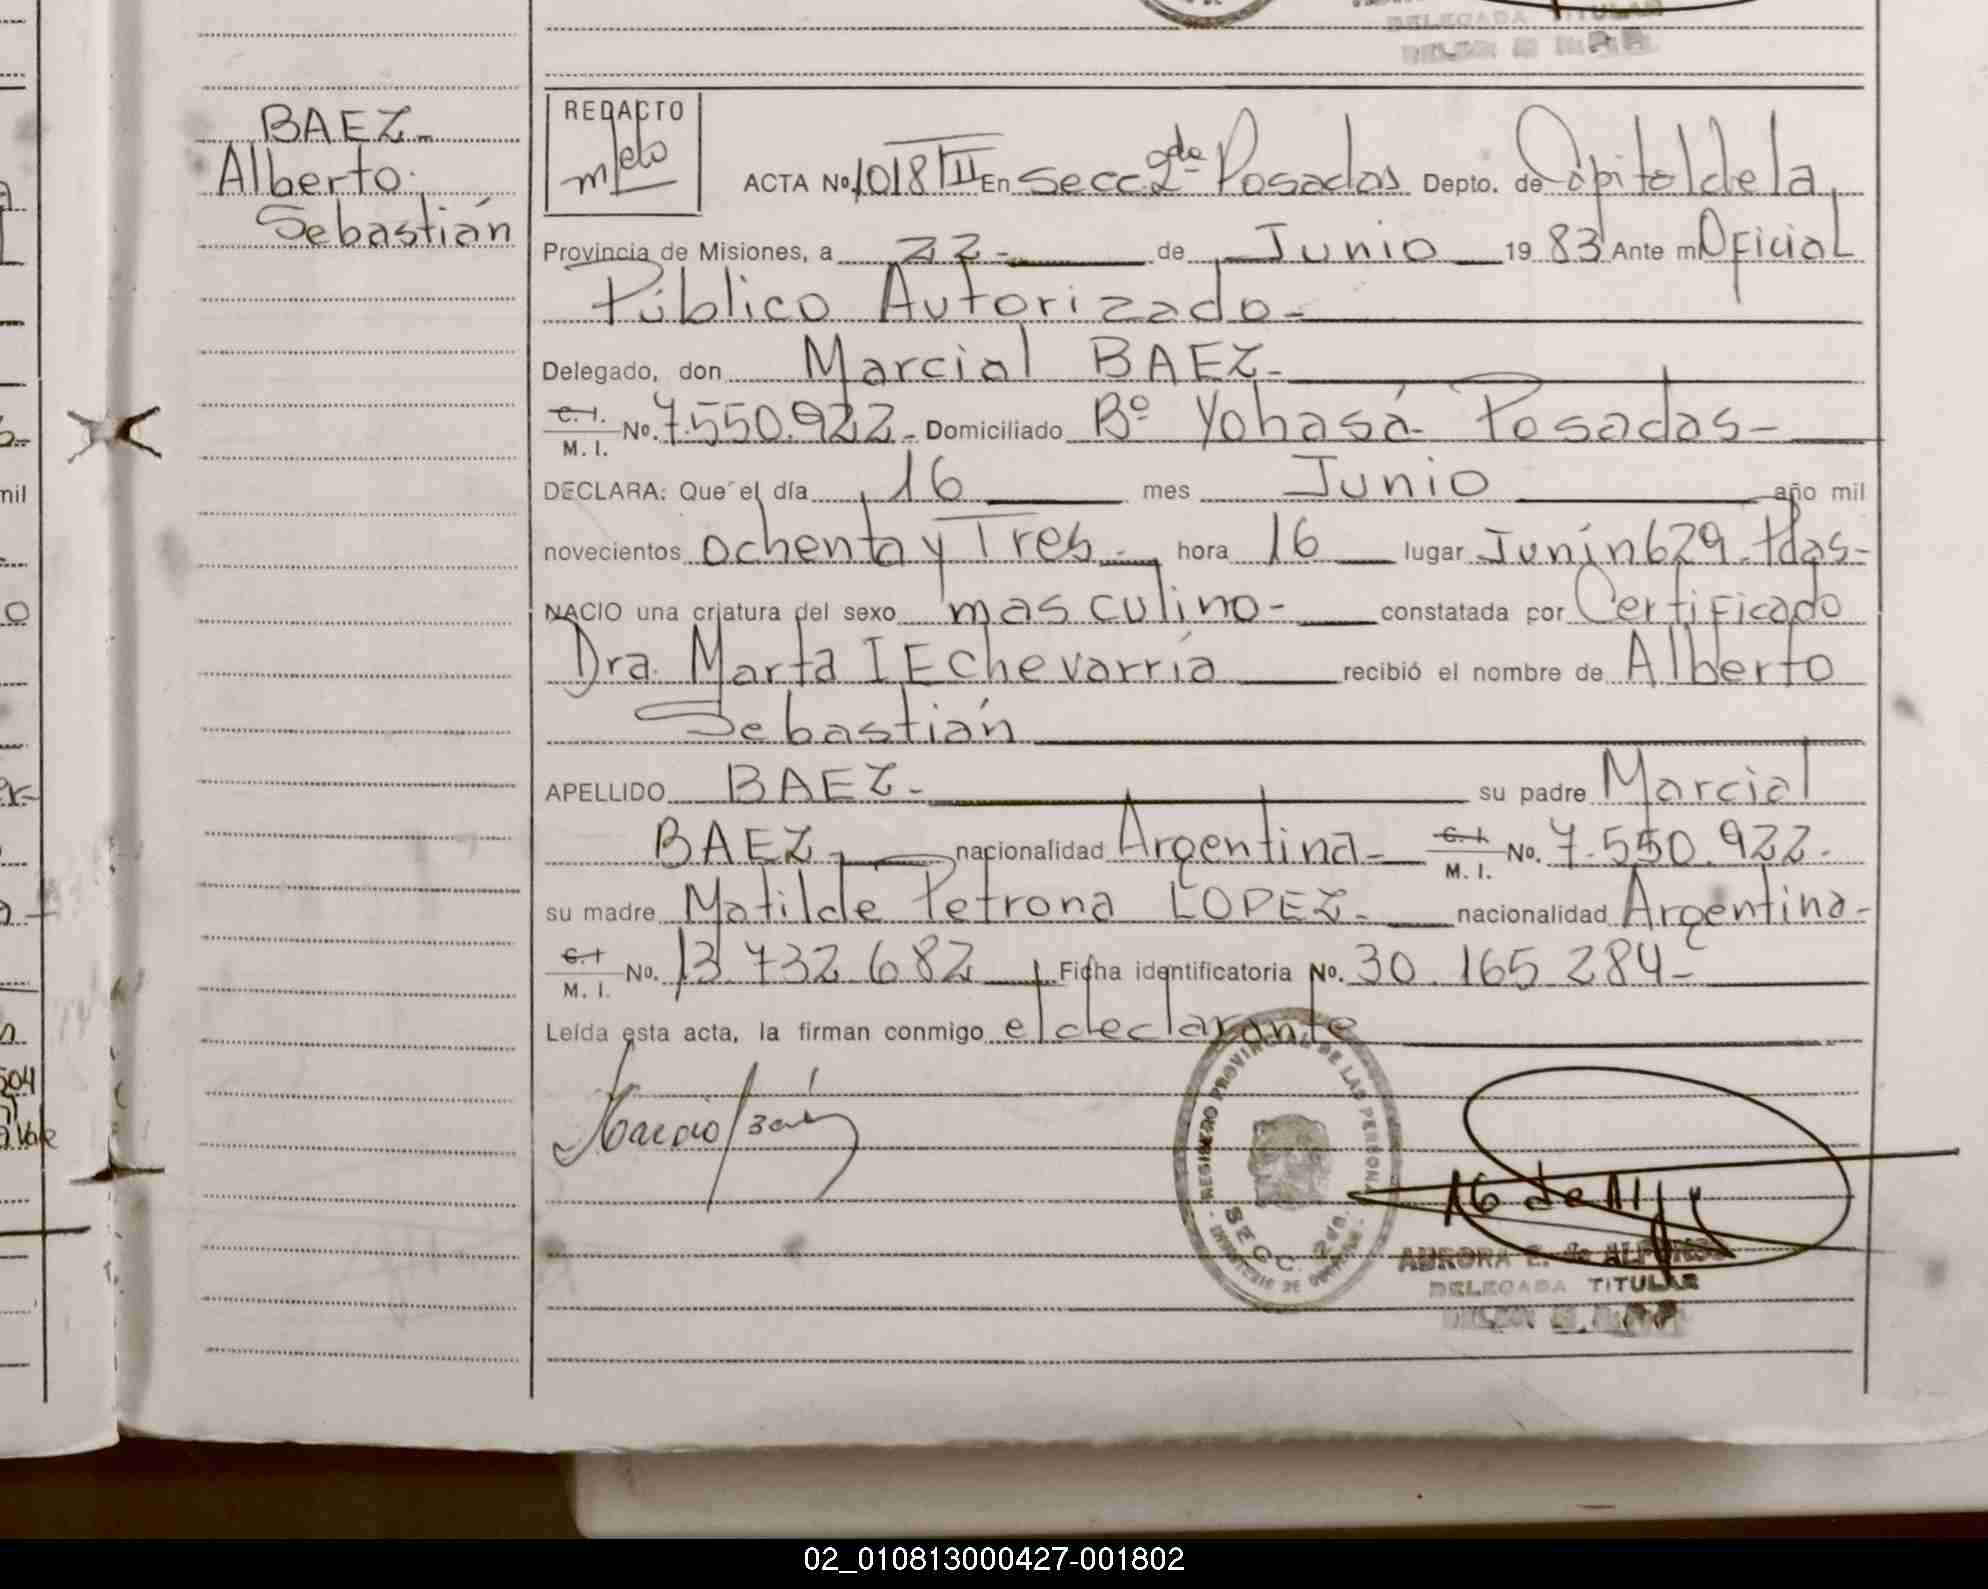 DELEGADA TITULAR
BAEZ-
Alberto
Sebastián
REDACTO
ACTA No. 1018 TII En Secc. 2da Posadas Depto. de Capital de la
Provincia de Misiones, a 22- de Junio 1983 Ante mi Oficial
Público Autorizado-
Delegado, don Marcial BAEZ-
C. I. / M. I. No. 7.550.922- Domiciliado Bº Yohasá Posadas-
DECLARA: Que el día 16 mes Junio año mil
novecientos ochenta y Tres- hora 16 lugar Junín 629-Pdas-
NACIO una criatura del sexo masculino- constatada por Certificado
Dra. Marta I Echevarría recibió el nombre de Alberto
Sebastián
APELLIDO BAEZ- su padre Marcial
BAEZ- nacionalidad Argentina- C. I. / M. I. No. 7.550.922-
su madre Matilde Petrona LOPEZ- nacionalidad Argentina-
C. I / M. I. No. 13.732.682 Ficha identificatoria No. 30.165.284-
Leída esta acta, la firman conmigo el declarante
REGISTRO PROVINCIAL DE LAS PERSONAS
SECC. 2da.
AURORA E. de ALFONSO
DELEGADA TITULAR
02_010813000427-001802